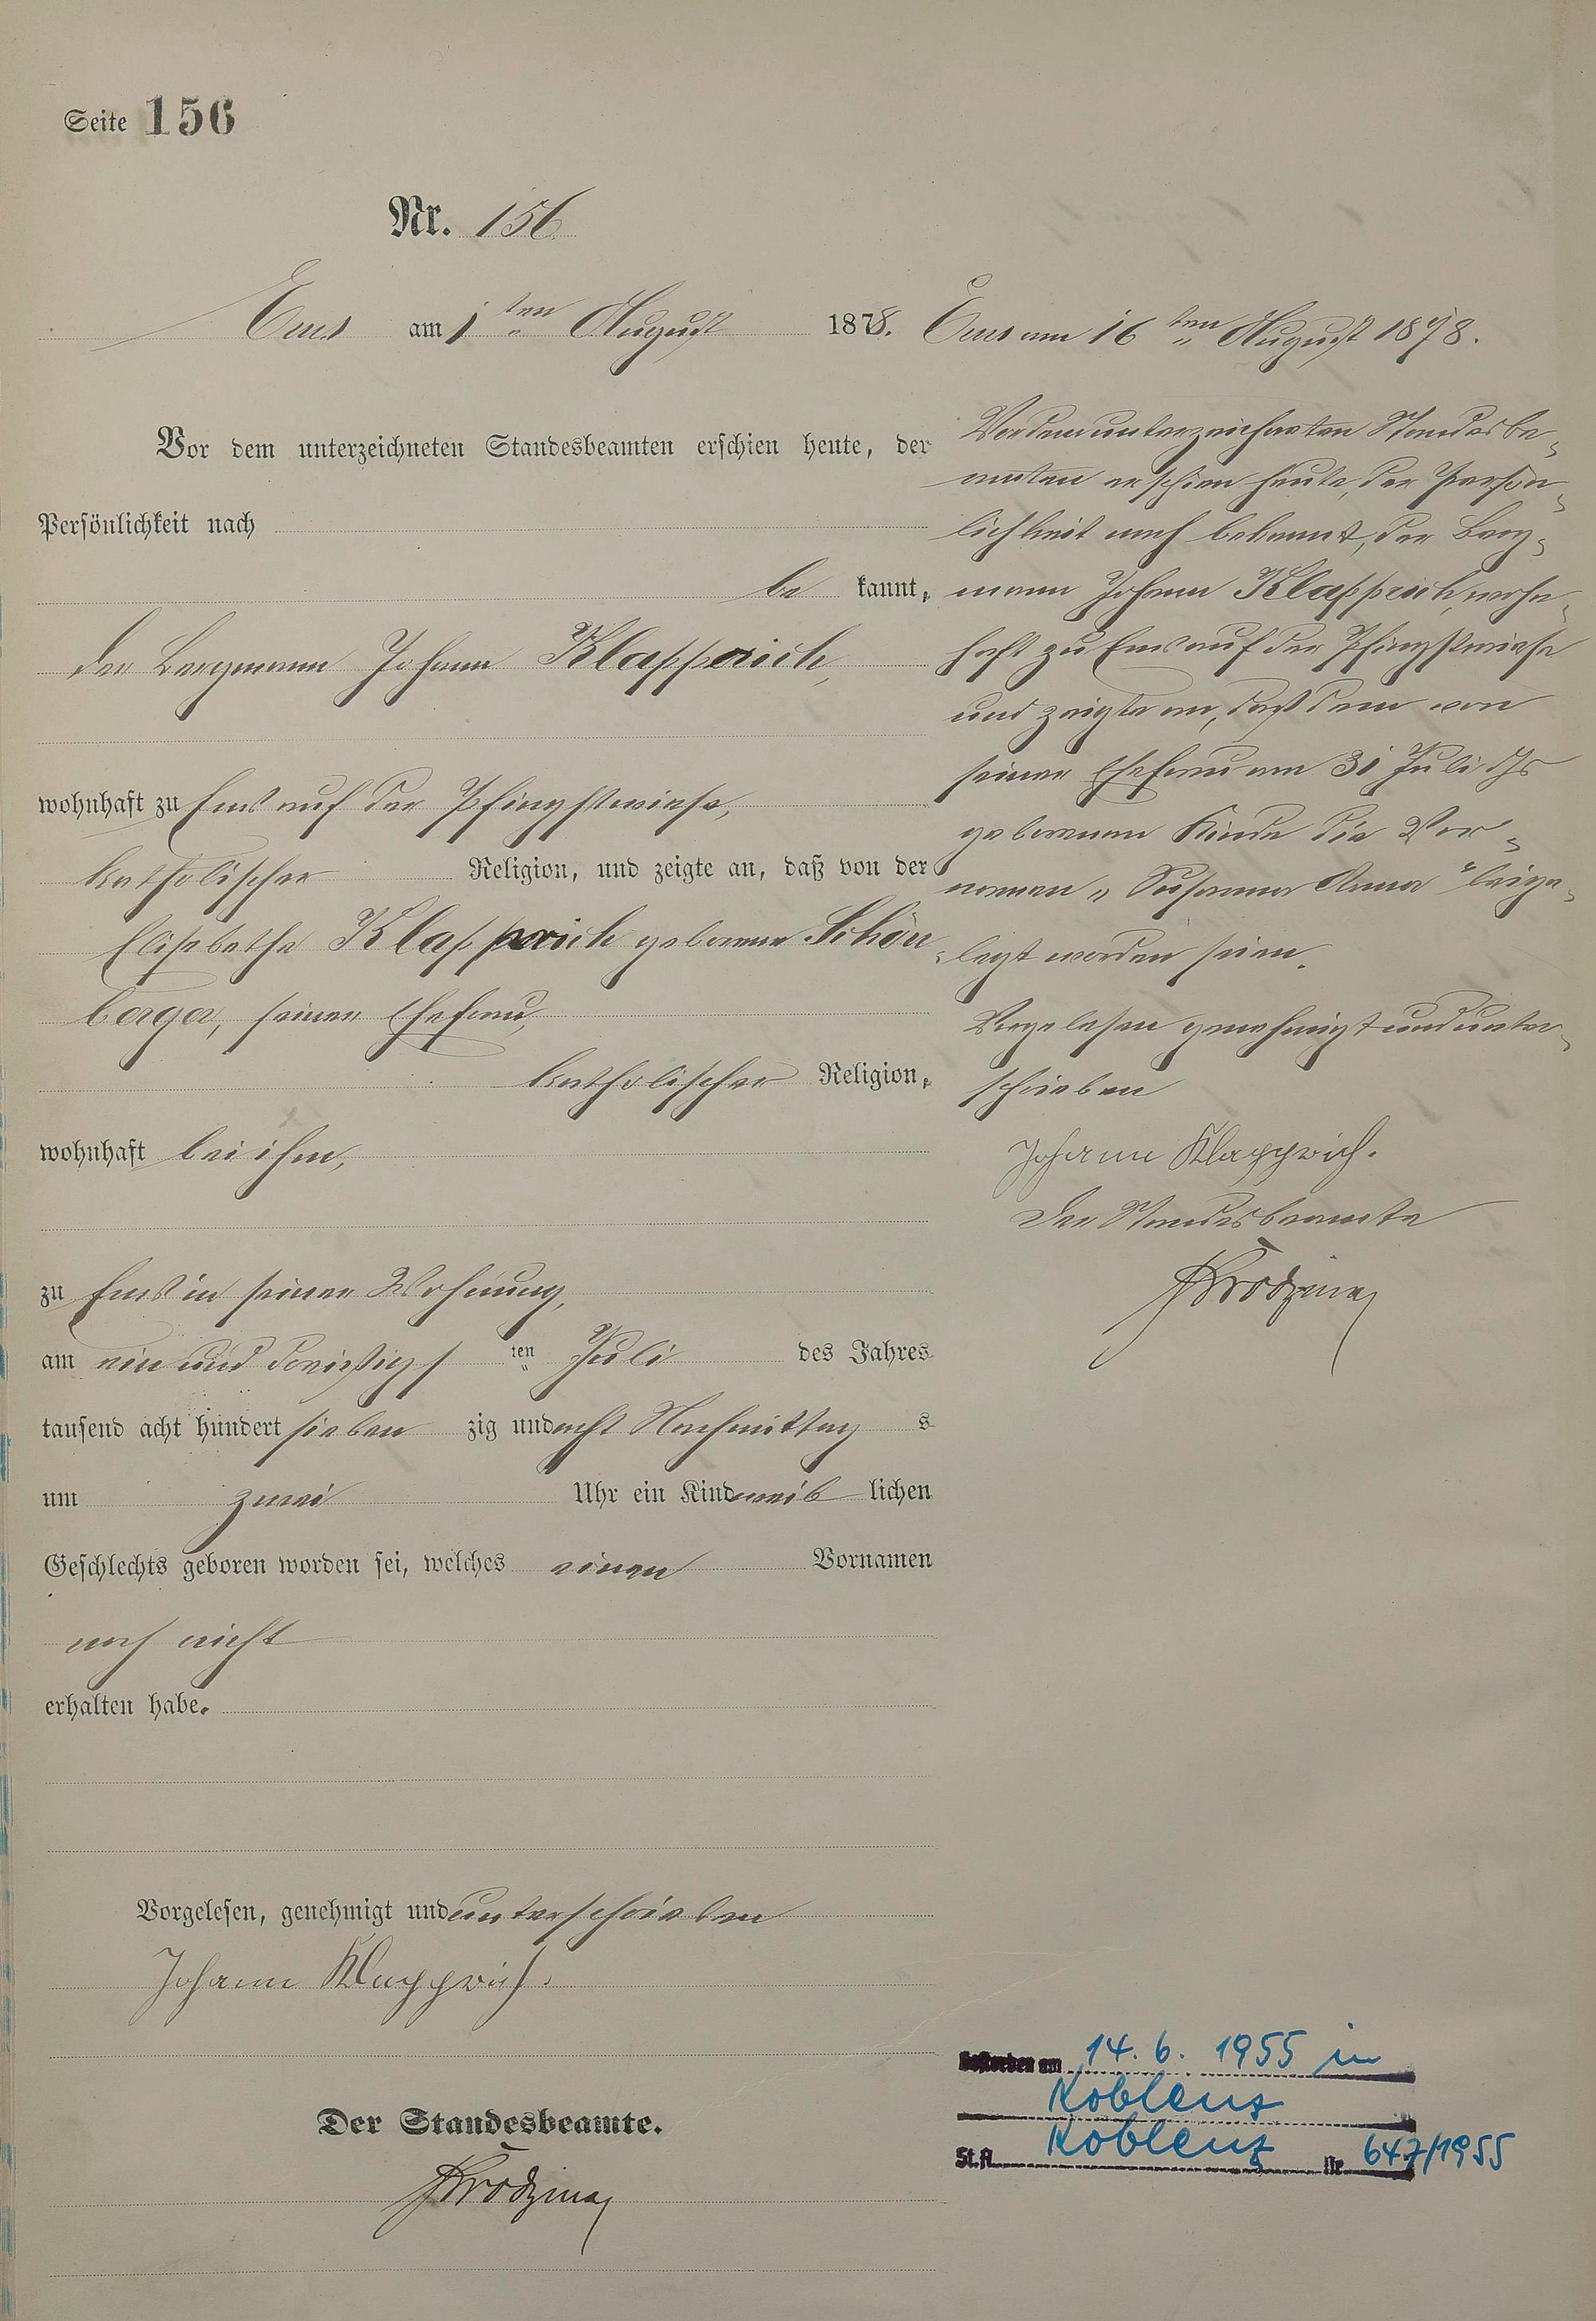 Seite 156
Nr. 156
Ems am 1ten August 1878.
Vor dem unterzeichneten Standesbeamten erschien heute, der
Persönlichkeit nach
be kannt,
der Bergmann Johann Klapprich,
wohnhaft zu Ems auf der Pfingstwiese,
katholischer Religion, und zeigte an, daß von der
Elisabetha Klapprich geborene Schön
berger, seiner Ehefrau,
katholischer Religion,
wohnhaft bei ihm,
zu Ems in seiner Wohnung,
am ein und dreißigs ten Juli des Jahres
tausend acht hundert sieben zig und acht Nachmittag s
um zwei Uhr ein Kind weib lichen
Geschlechts geboren worden sei, welches einen Vornamen
noch nicht
erhalten habe.
Vorgelesen, genehmigt und unterschrieben
Johann Klapprich.
Der Standesbeamte.
Ems am 16ten August 1878.
Vor dem unterzeichneten Standesbe-
amten erschien heute, der Persön-
lichkeit nach bekannt, der Berg-
mann Johann Klapprich, wohn-
haft zu Ems auf der Pfingstwiese
und zeigte an, daß dem von
seiner Ehefrau am 31 Juli d Js
geborenen Kinde die Vor-
namen „Susanna Anna" beige-
legt worden seien.
Vorgelesen genehmigt und unter-
schrieben
Johann Klapprich.
Der Standesbeamte
Gestorben am 14. 6. 1955 in
Koblenz
St.A. Koblenz Nr. 647/1955